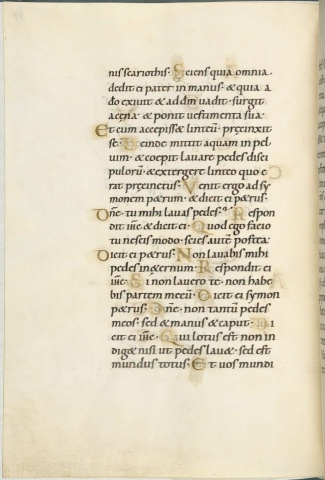 nis scariothis· Sciens quia omnia
dedit ei pater in manus· & quia a
do exiuit & ad dm uadit· surgit
a cena· & ponit uestimenta sua·
Et cum accepiss& linteū· precinxit
se· Deinde mittit aquam in pel
uim· & coepit lauare pedes disci
pulorū· & extergere linteo quo e
rat precinctus· Venit ergo ad sy
monem petrum· & dicit ei petrus·
Dñe· tu mihi lauas pedes? Respon
dit ihc̄ & dicit ei· Quod ego facio
tu nescis modo· scies autē postea·
Dicit ei petrus· Non lauabis mihi
pedes in eternum· Respondit ei
ihc̄· Si non lauero te· non habe
bis partem mecū· Dicit ei symon
petrus· Dñe· non tantū pedes
meos· sed & manus & caput· Di
cit ei ihc̄· Qui lotus est non in
dig& nisi ut pedes lau&· sed est
mundus totus· Et uos mundi